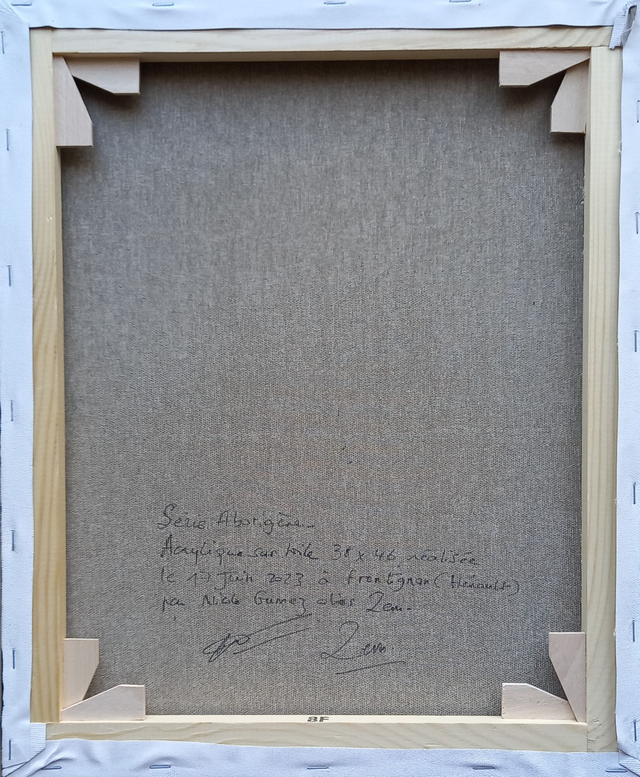 Série Aborigène_
Acrylique sur toile 38 x 46 réalisée
le 17 Juin 2023 à Frontignan (Hérault)
par Gumez alias Zem.
Zem.
8F